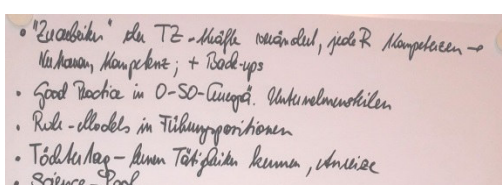 • "Zuarbeiten" der TZ-Kräfte verändert, jede R Kompetenzen →
Kompetenz; + Back-ups
• Good Practice in O-SO-Europa. Unternehmenskulen
• Role-Models in Führungspositionen
• Töchtertag – kennen Tätigkeiten kennen, Anreize
• Science-Pool